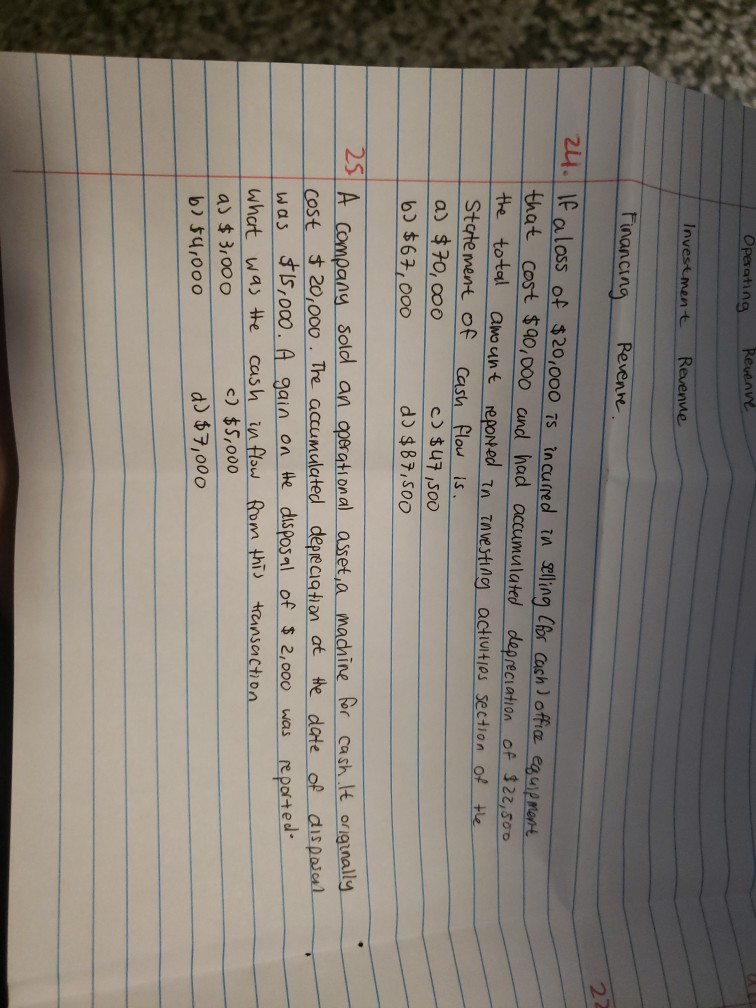 Operating Revenue
Investment Revenue
Financing Revenue.
22
24. If a loss of $20,000 is incurred in selling (for cash) office equipment
that cost $90,000 and had accumulated depreciation of $22,500
the total amount reported in investing activities section of the
Statement of cash flow is.
a) $70,000 c) $47,500
b) $67,000 d) $87,500
25 A company sold an operational asset, a machine for cash. It originally
cost $20,000. The accumulated depreciation at the date of disposal
was $15,000. A gain on the disposal of $2,000 was reported.
what was the cash inflow from this transaction
a) $3,000 c) $5,000
b) $4,000 d) $7,000